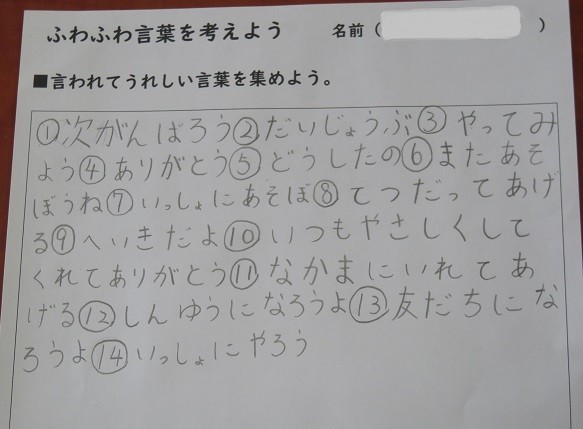 ふわふわ言葉を考えよう 名前( )
■言われてうれしい言葉を集めよう。
①次がんばろう②だいじょうぶ③やってみ
よう④ありがとう⑤どうしたの⑥またあそ
ぼうね⑦いっしょにあそぼ⑧てつだってあげ
る⑨へいきだよ⑩いつもやさしくして
くれてありがとう⑪なかまにいれてあ
げる⑫しんゆうになろうよ⑬友だちにな
ろうよ⑭いっしょにやろう